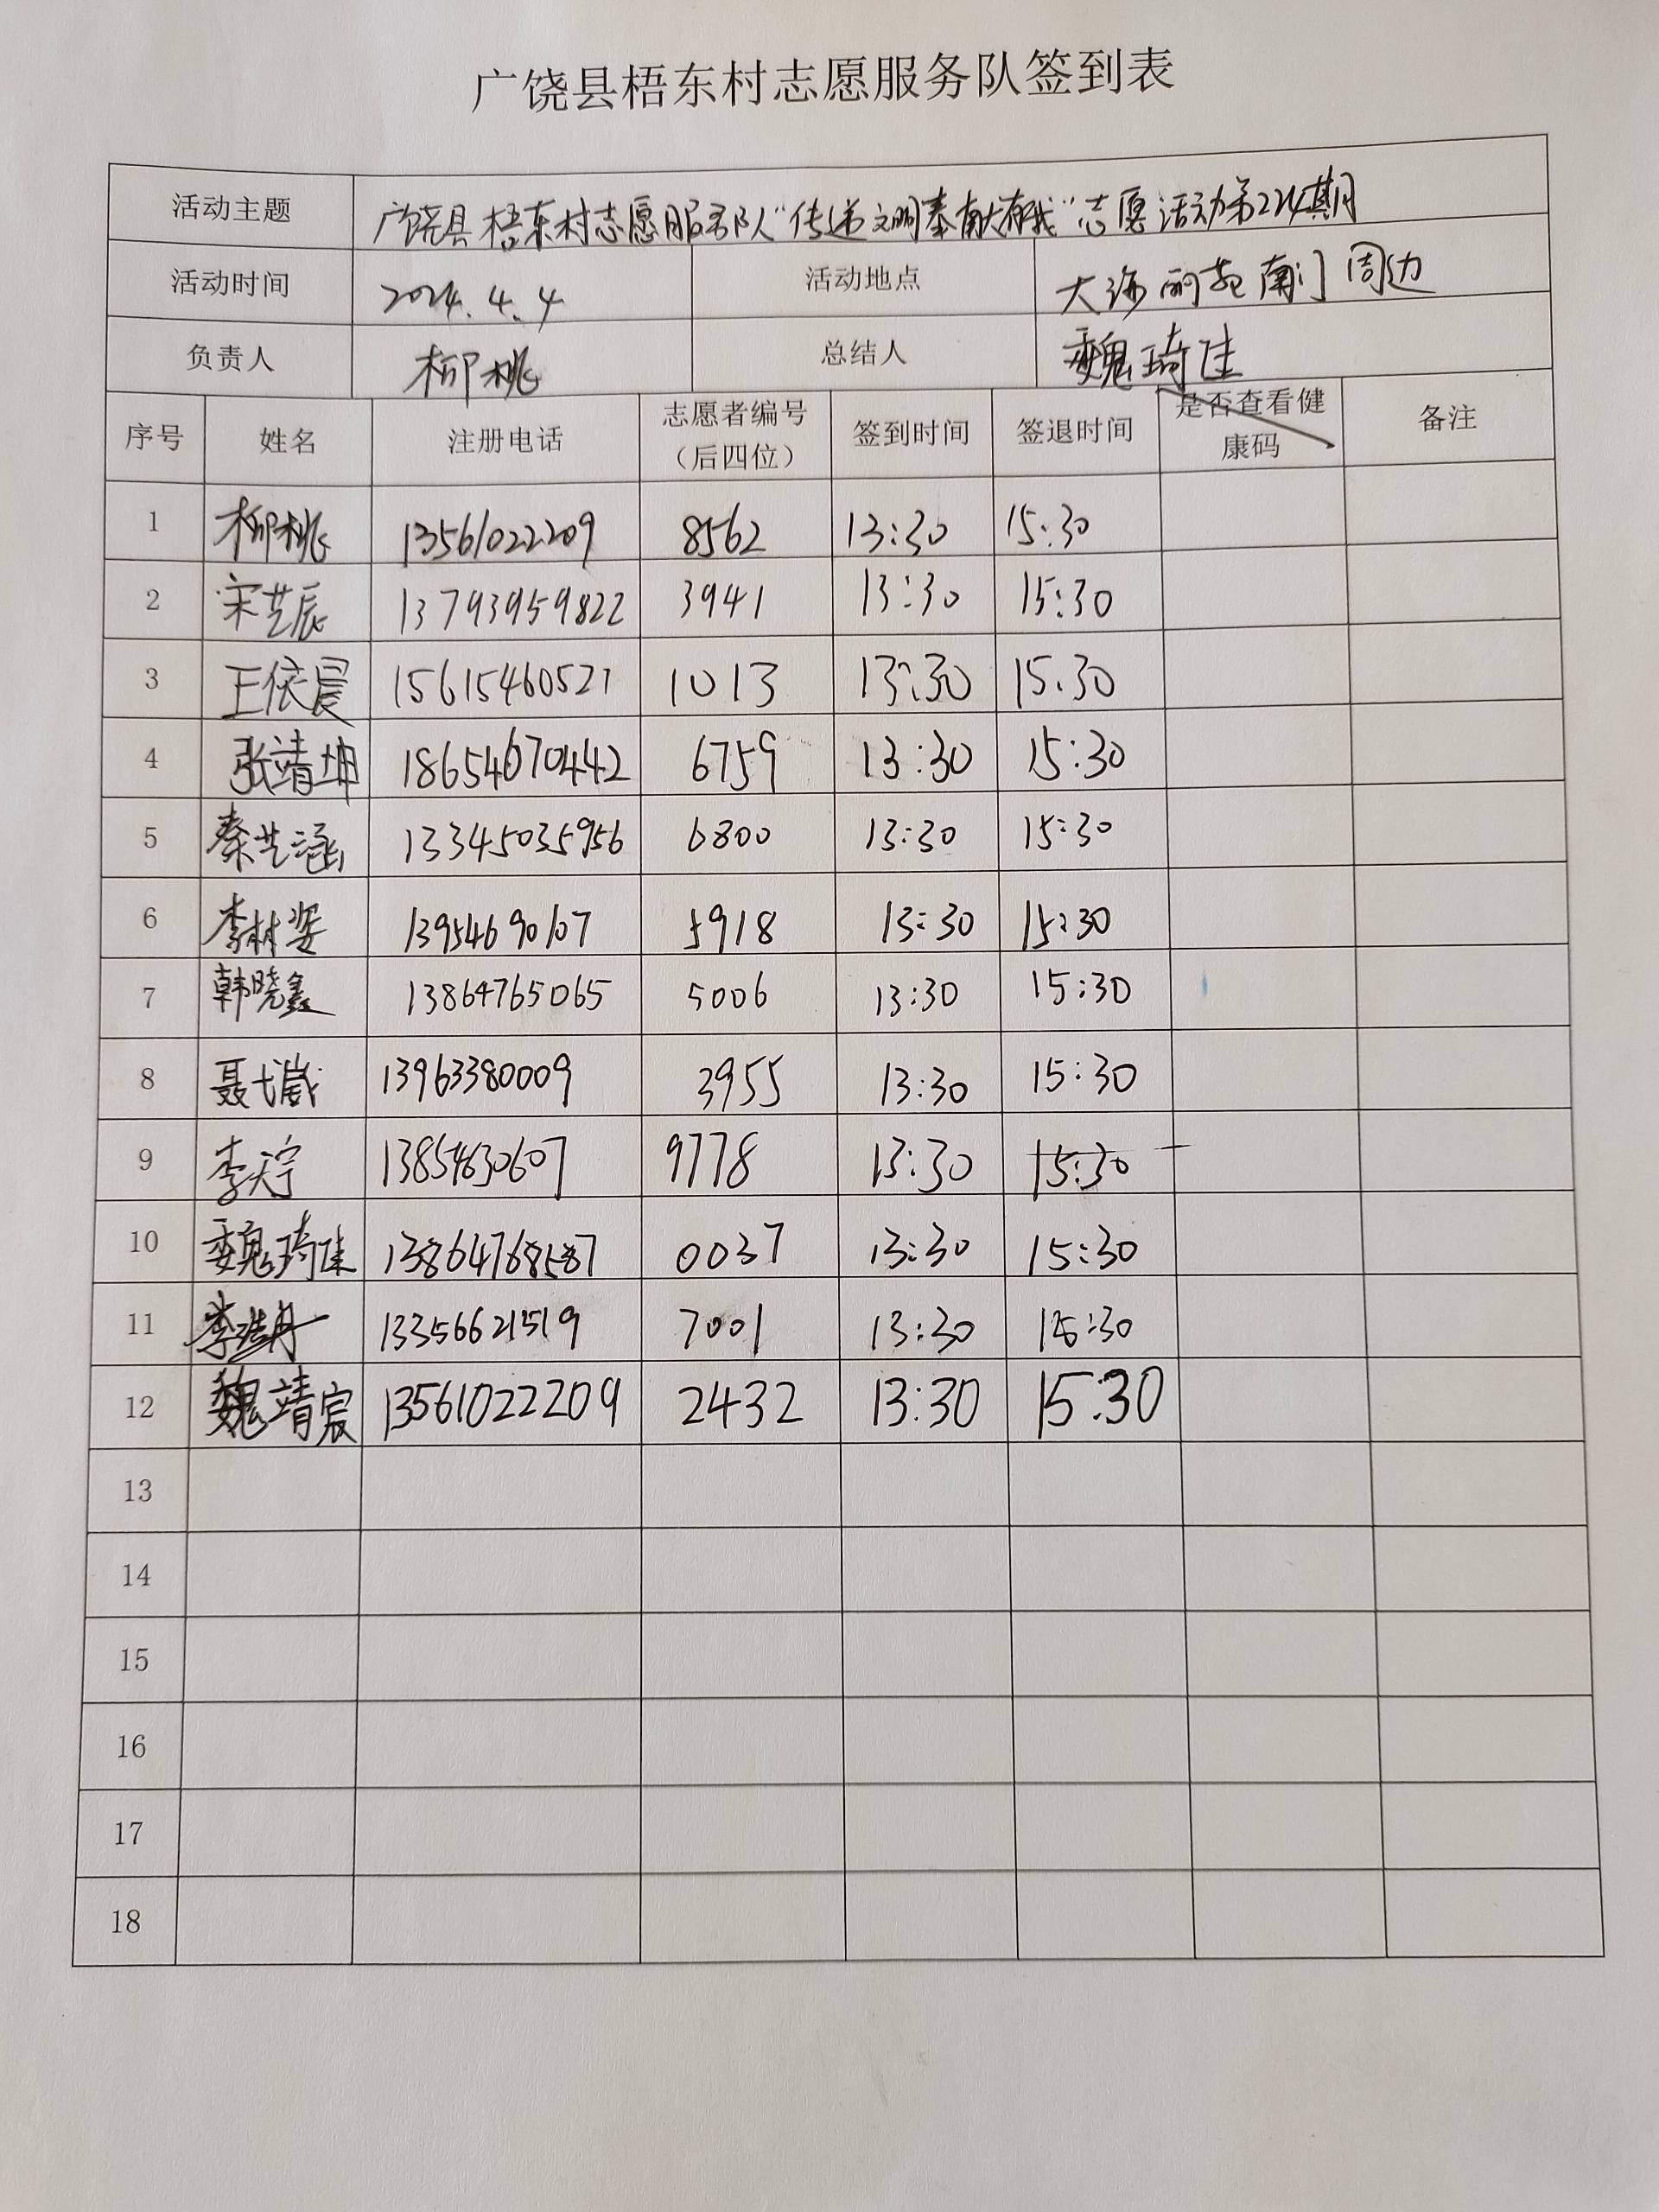 广饶县梧东村志愿服务队签到表
活动主题 广饶县梧东村志愿服务队“传递文明奉献有我”志愿活动第224期
活动时间 2024.4.4 活动地点 大海丽苑南门周边
负责人 柳桃 总结人 魏琦佳
序号 姓名 注册电话 志愿者编号（后四位） 签到时间 签退时间 是否查看健康码 备注
1 柳桃 13561022209 8562 13:30 15:30
2 宋艺辰 13793959822 3941 13:30 15:30
3 王依晨 15615460521 1013 13:30 15.30
4 张靖坤 18654670442 6759 13:30 15:30
5 秦艺涵 13345035956 6800 13:30 15:30
6 李林姿 13954690107 5918 13:30 15:30
7 韩晓鑫 13864765065 5006 13:30 15:30
8 聂弋崴 13963380009 3955 13:30 15:30
9 李天宁 13854630607 9778 13:30 15:30
10 魏琦佳 13864768587 0037 13:30 15:30
11 13356621519 7001 13:30 15:30
12 魏靖宸 13561022209 2432 13:30 15:30
13
14
15
16
17
18